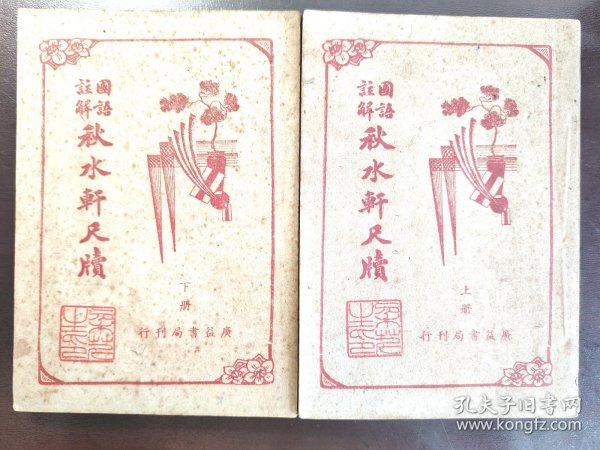 國語
註解
秋水軒尺牘
下冊
廣益書局刊行
國語
註解
秋水軒尺牘
上冊
廣益書局刊行
孔夫子旧书网
www.kongfz.com